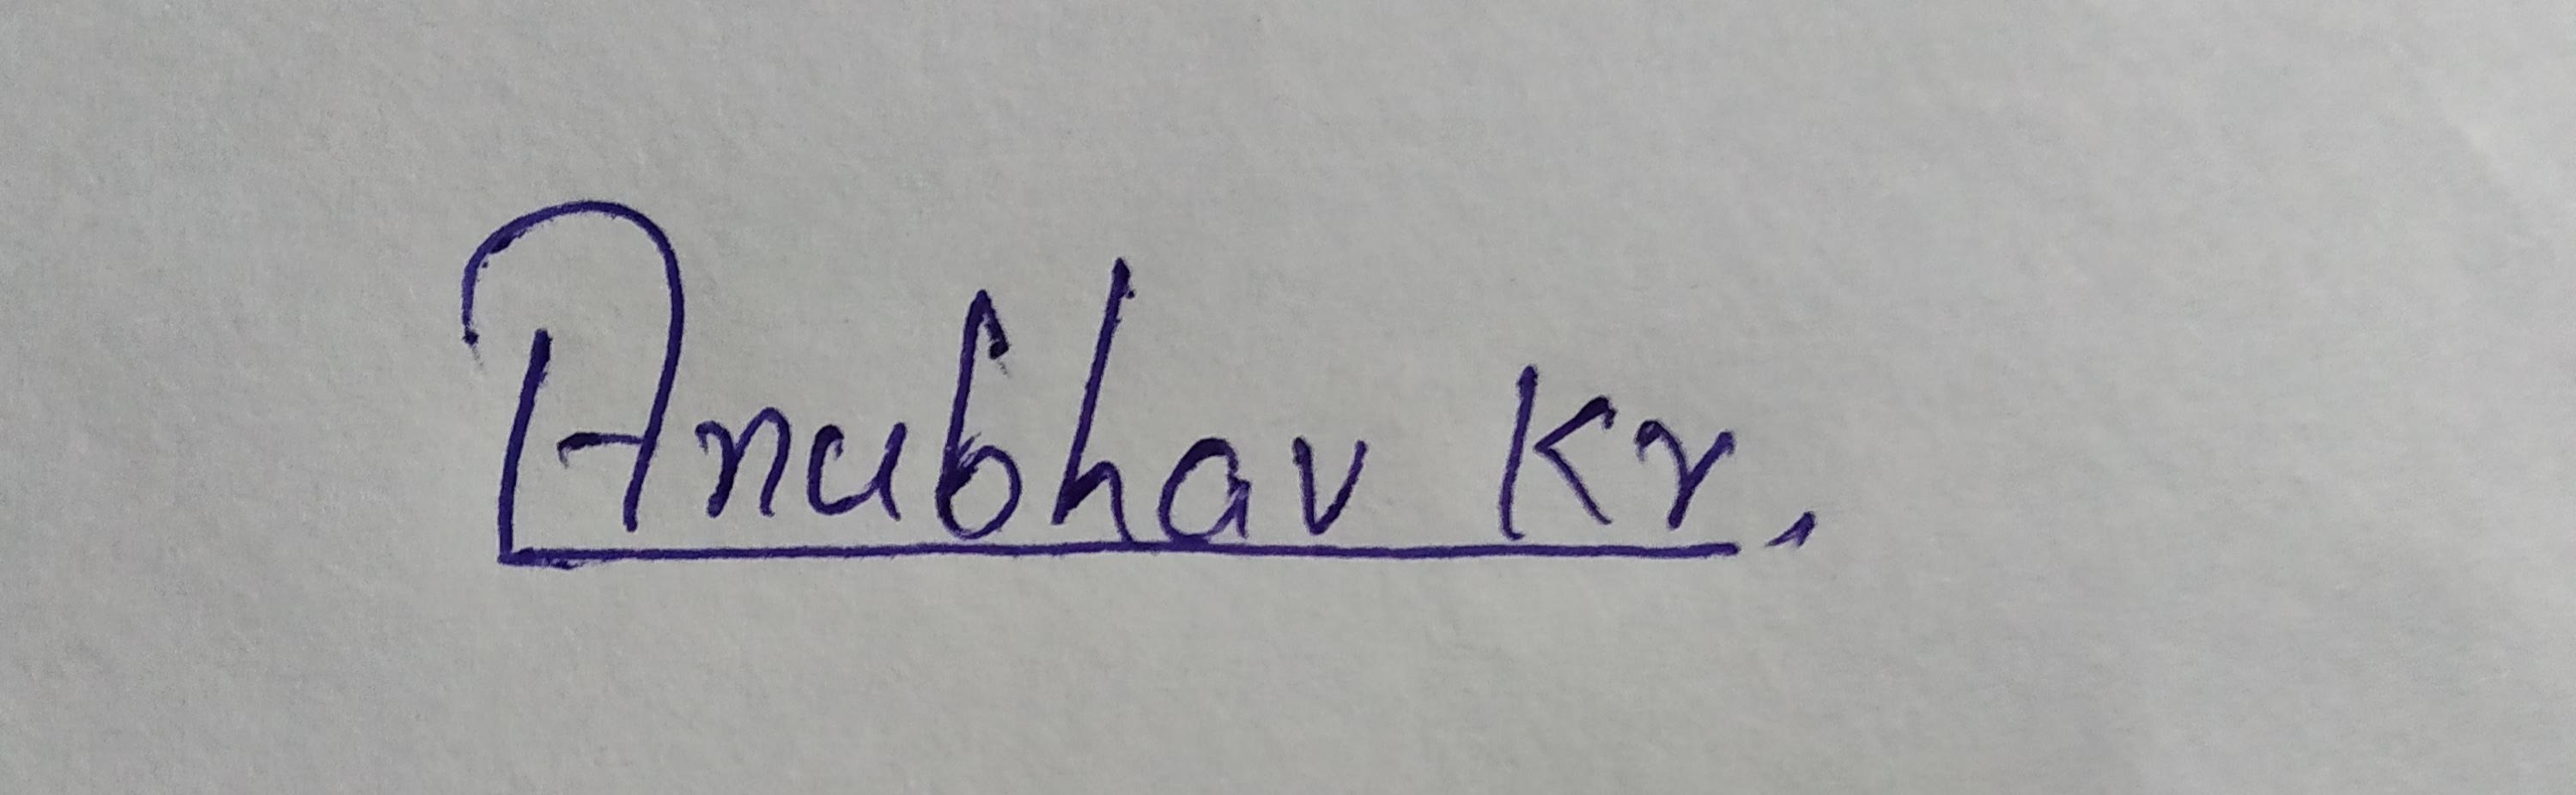 Anubhav Kr.